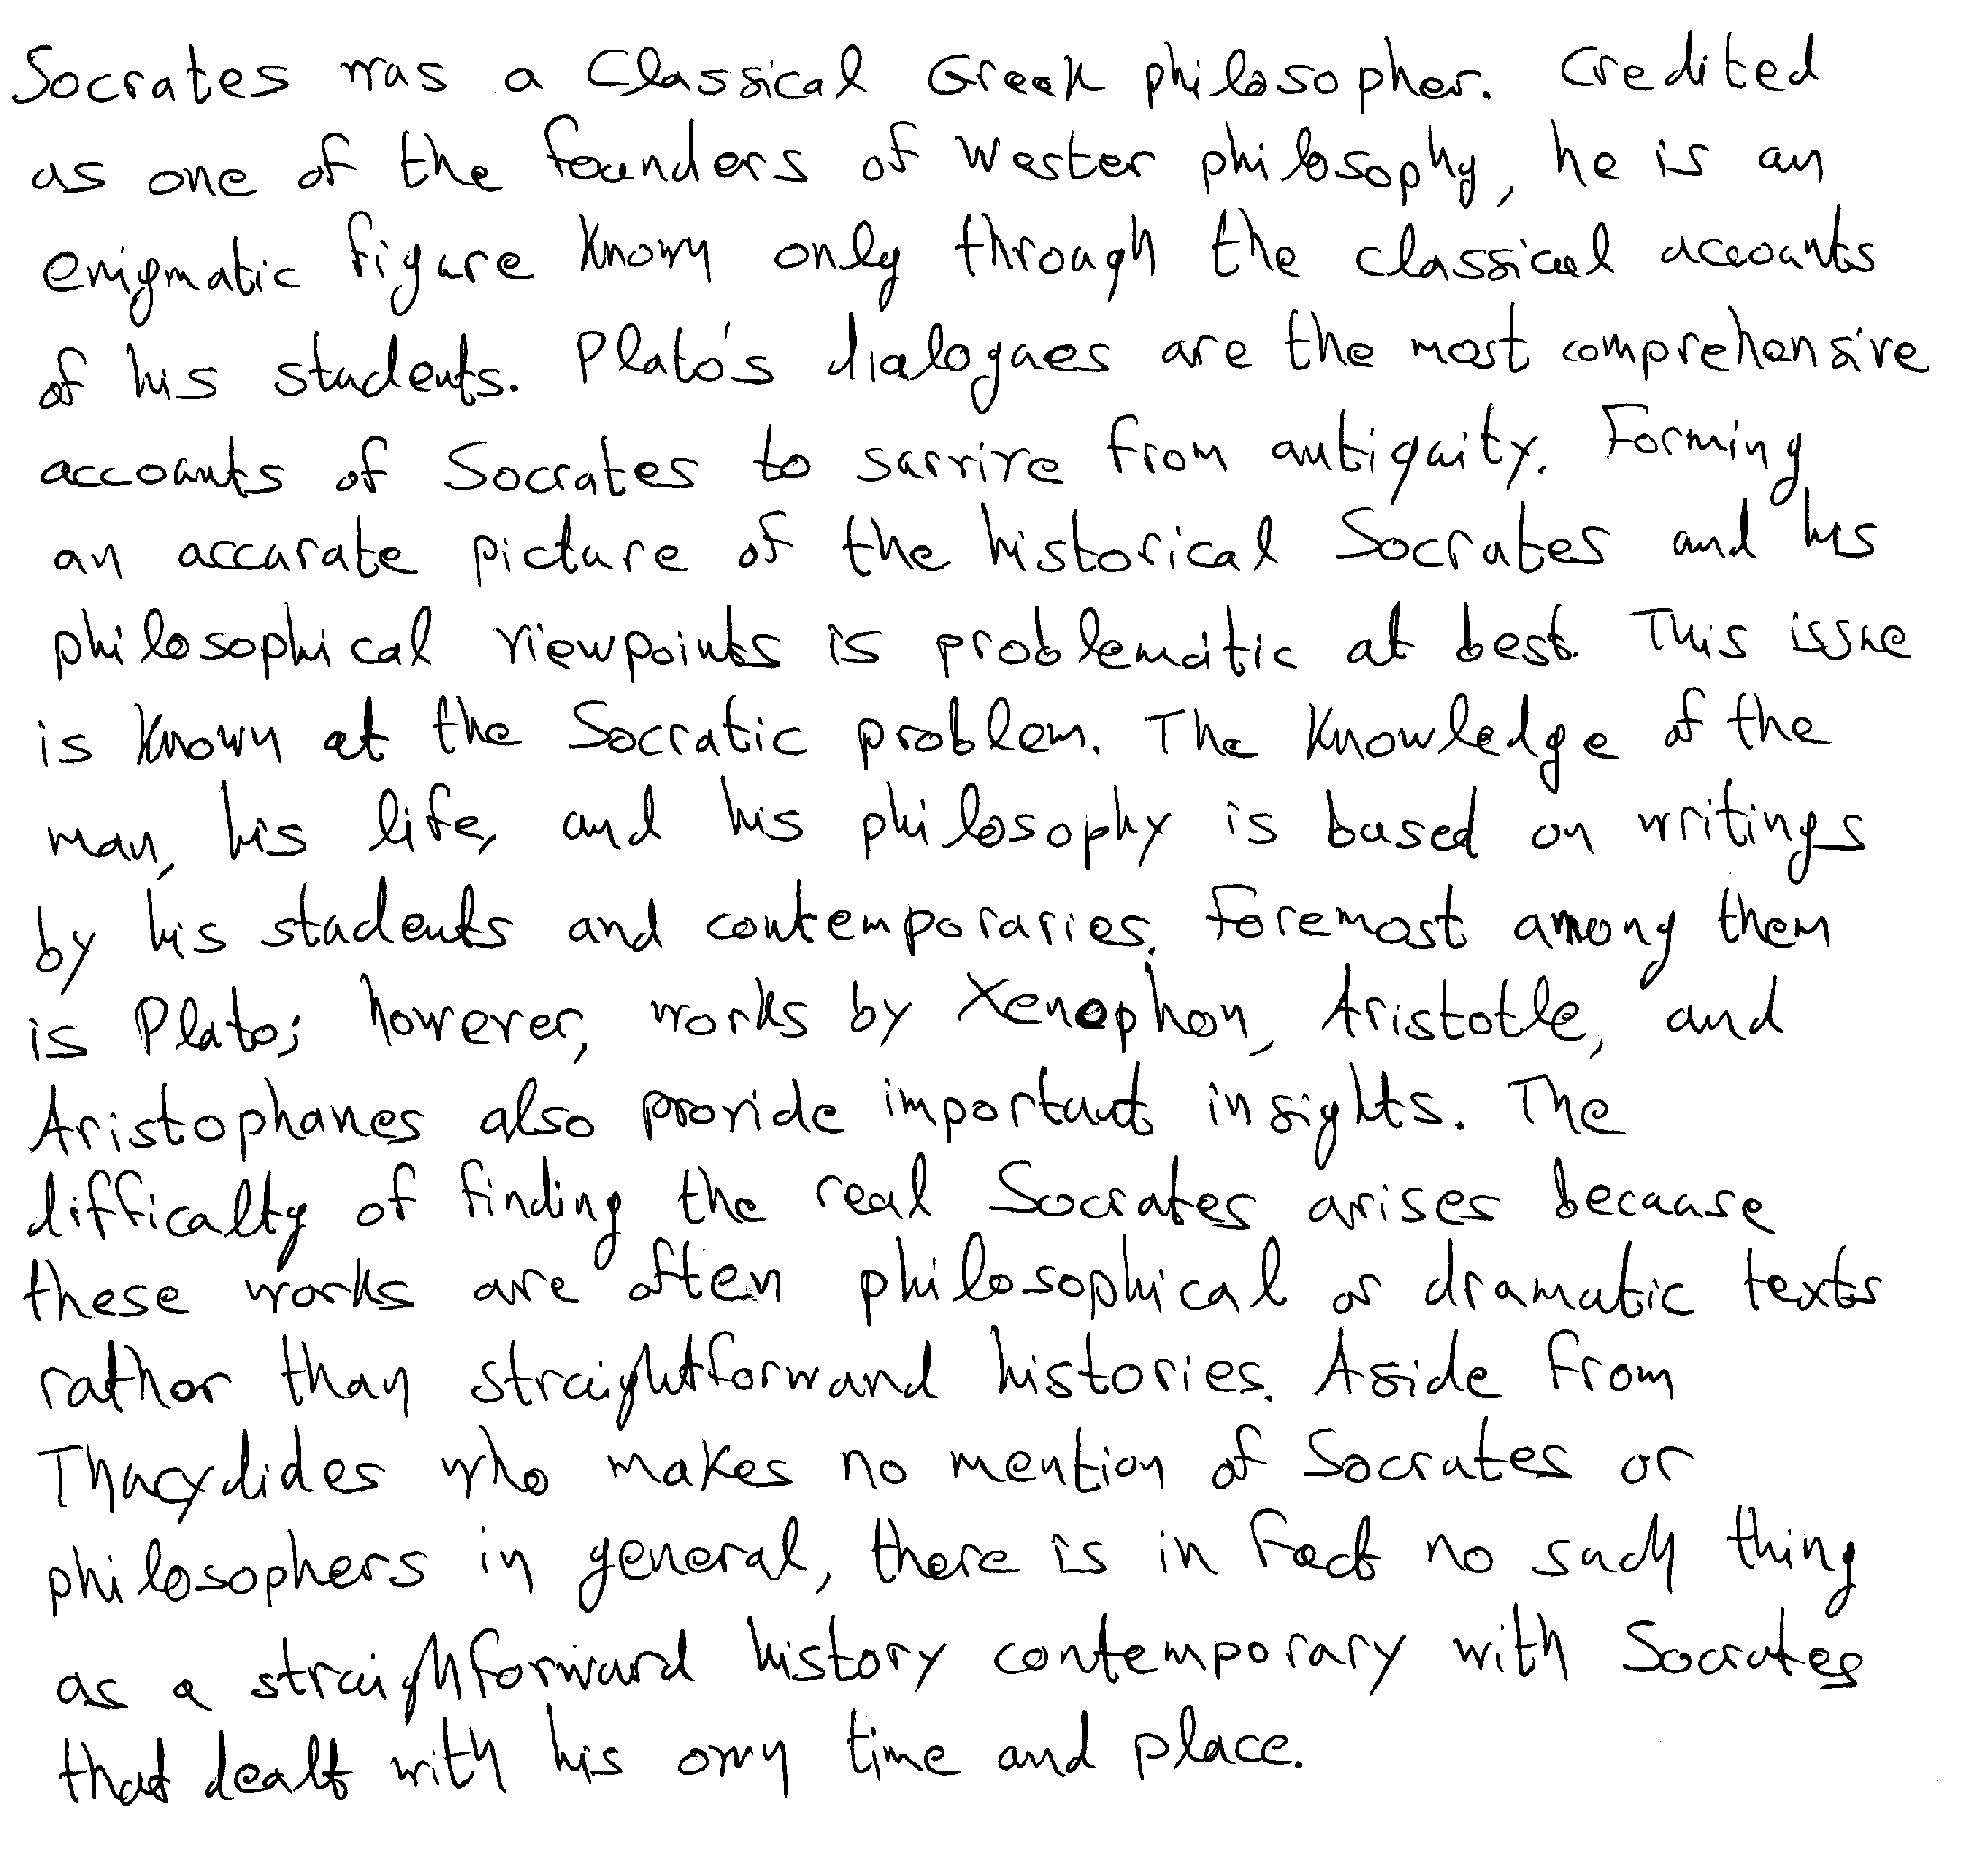 Socrates was a Classical Greek philosopher. Credited
as one of the founders of Wester philosophy, he is an
enigmatic figure known only through the classical accounts
of his students. Plato's dialogues are the most comprehensive
accounts of Socrates to survive from antiquity. Forming
an accurate picture of the historical Socrates and his
philosophical viewpoints is problematic at best. This issue
is known at the Socratic problem. The knowledge of the
man, his life, and his philosophy is based on writings
by his students and contemporaries. Foremost among them
is Plato; however, works by Xenophon, Aristotle, and
Aristophanes also provide important insights. The
difficulty of finding the real Socrates arises because
these works are often philosophical or dramatic texts
rather than straightforward histories. Aside from
Thucydides who makes no mention of Socrates or
philosophers in general, there is in fact no such thing
as a straighforward history contemporary with Socrates
that dealt with his own time and place.